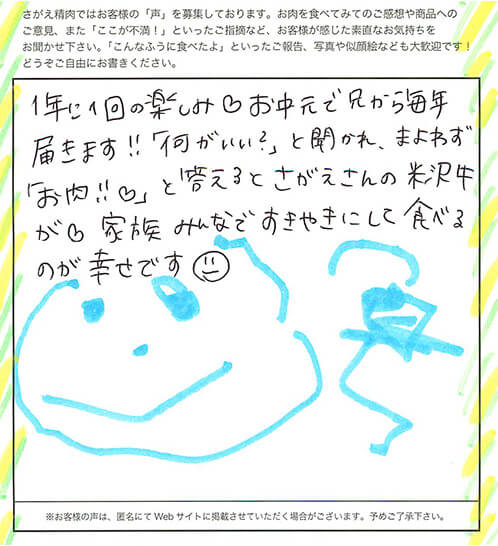 さがえ精肉ではお客様の「声」を募集しております。お肉を食べてみてのご感想や商品への
ご意見、また「ここが不満！」といったご指摘など、お客様が感じた素直なお気持ちを
お聞かせ下さい。「こんなふうに食べたよ」といったご報告、写真や似顔絵なども大歓迎です！
どうぞご自由にお書きください。
1年に1回の楽しみ♡お中元で兄から毎年
届きます!!「何がいい？」と聞かれ、まよわず
「お肉!!♡」と答えるとさがえさんの米沢牛
が♡ 家族みんなですきやきにして食べる
のが幸せです☺
※お客様の声は、匿名にてWebサイトに掲載させていただく場合がございます。予めご了承下さい。